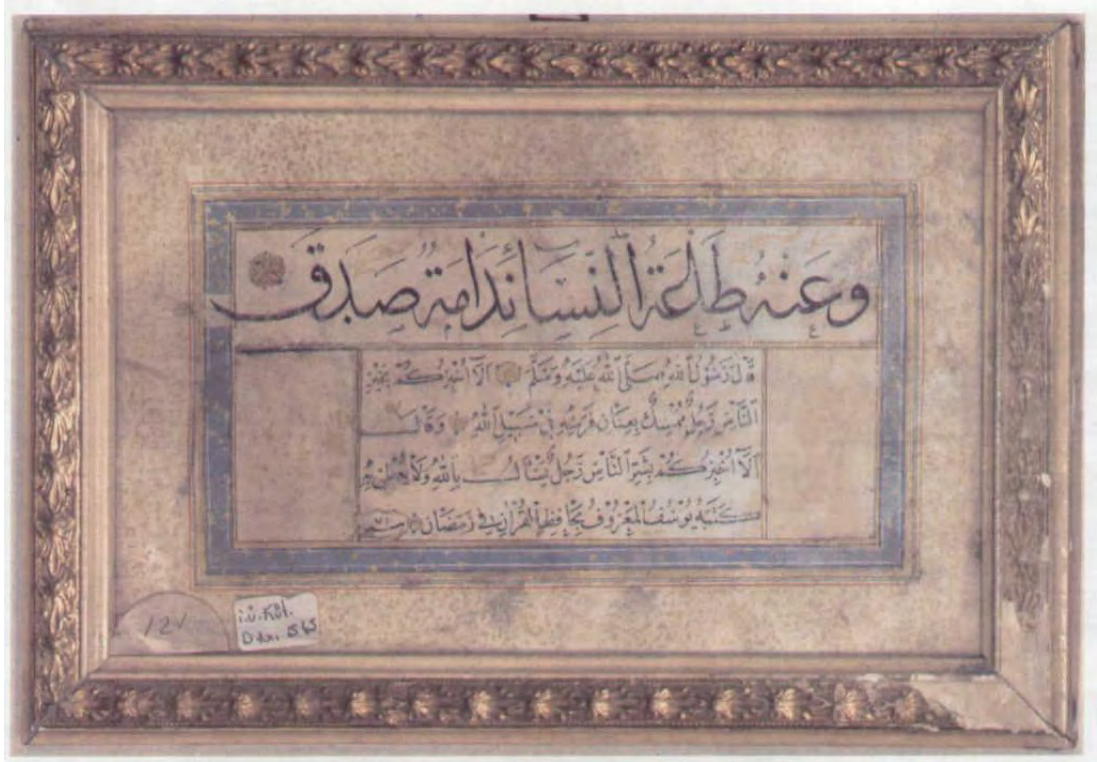 وَعَنْهُ طَاعَةُ النِّسَائِ نَدَامَةٌ صَدَقَ
قَالَ رَسُولُ اللهِ صَلَّى اللهُ عَلَيْهِ وَسَلَّمَ اَلَا اُخْبِرُكُمْ بِخَيْرِ
النَّاسِ رَجُلٌ مُمْسِكٌ بِعِنَانِ فَرَسِهِ فِي سَبِيلِ اللهِ وَقَالَ
اَلَا اُخْبِرُكُمْ بِشَرِّ النَّاسِ رَجُلٌ يُسْئَالُ بِاللهِ وَلَا يُعْطِى بِهِ
كَتَبَهُ يُوسُفُ الْمَعْرُوفُ بِحَافِظِ الْقُرْاٰنِ فِي رَمَضَان
İ.Ü. Küt.